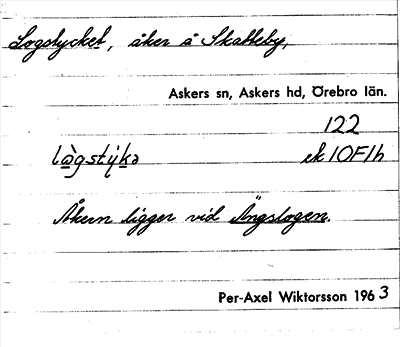 Logstycket, åker å Skatteby,
Askers sn, Askers hd, Örebro län.
122
lògstýkə ek 10F1h
Åkern ligger vid Ängslogen.
Per-Axel Wiktorsson 1963